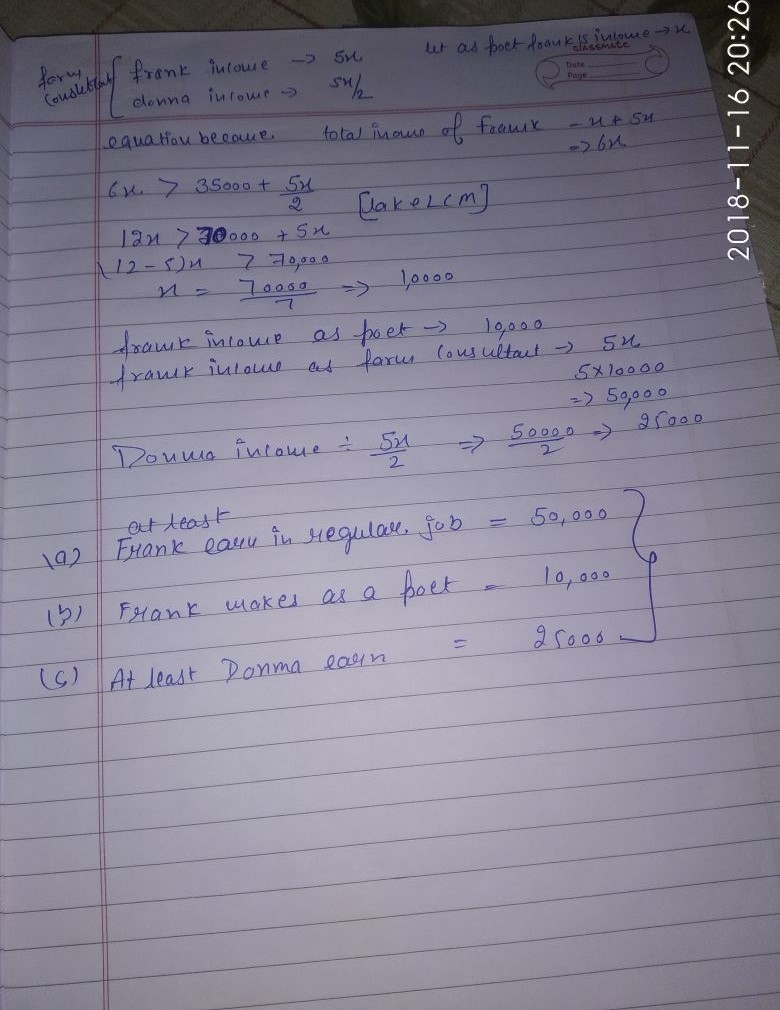 let as poet frank's income → x
classmate
Date
Page
farm consultant { frank income → 5x
donna income → 5x/2
equation become. total incme of Frank - x + 5x
=> 6x
6x > 35000 + 5x/2 [take LCM]
12x > 70000 + 5x
(12-5)x > 70,000
x = 70000/7 => 1,0000
frank income as poet → 10,000
frank income as farm consultant → 5x
5x10000
=> 50,000
Donna income ÷ 5x/2 => 50000/2 => 25000
at least
(a) Frank earn in regular job = 50,000
(b) Frank makes as a poet - 10,000
(c) At least Donma earn = 25000
2018-11-16 20:26